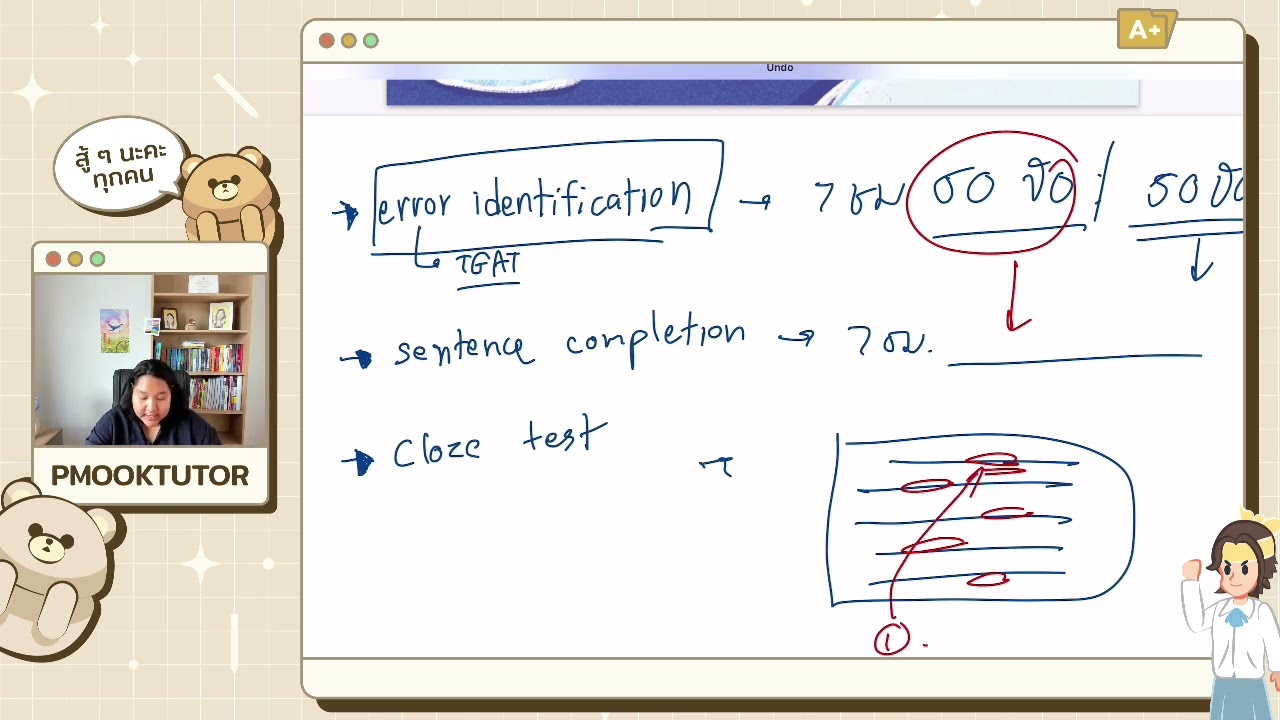 A+
Undo
สู้ ๆ นะคะ
ทุกคน
error identification → 7 ชม 50 ข้อ / 50 ข้อ
TGAT
sentence completion → 7 ชม.
cloze test
①.
PMOOKTUTOR